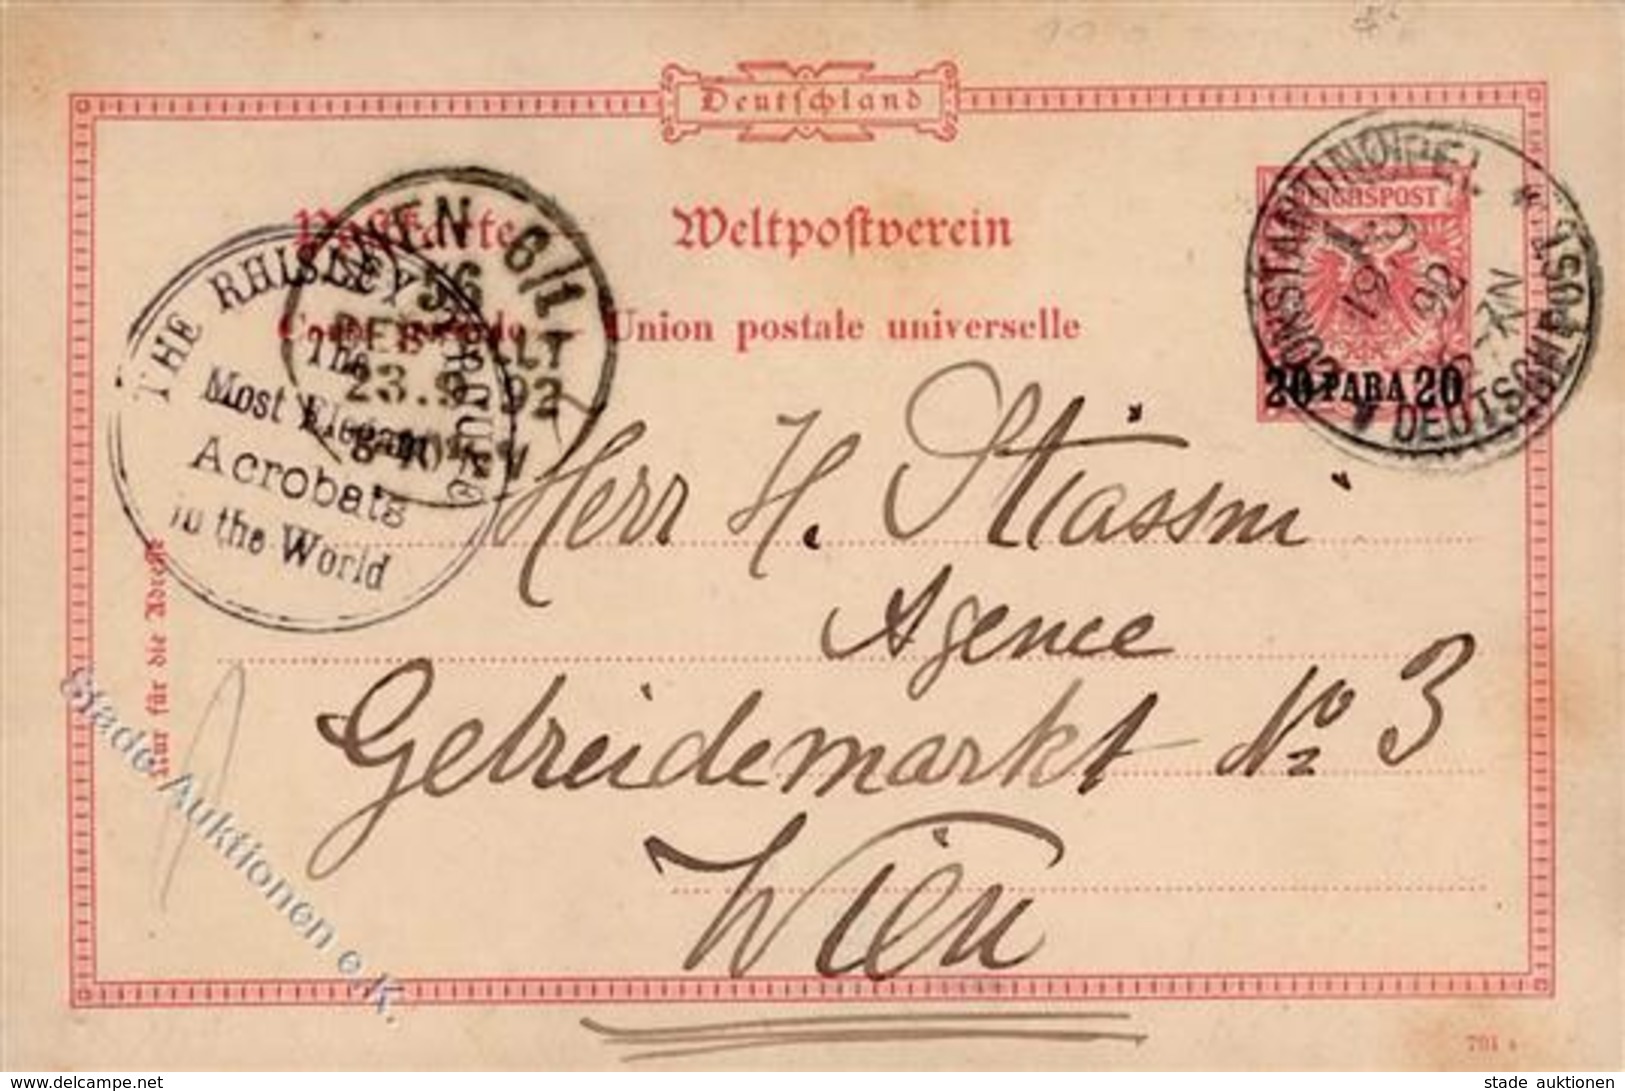 Deutschland
Postkarte Weltpostverein
Carte postale Union postale universelle
REICHSPOST
20 PARA 20
CONSTANTINOPEL * DEUTSCHE POST *
19 92
WIEN 6/1
56
BESTELLT
23.9.92
THE RHISLEY TROUPE
The
Most Elegant
Acrobats
in the World
Herr H. Stiassni
Agence
Getreidemarkt No 3
Wien
Nur für die Adresse
Stade Auktionen e.K.
791
www.delcampe.net
stade auktionen